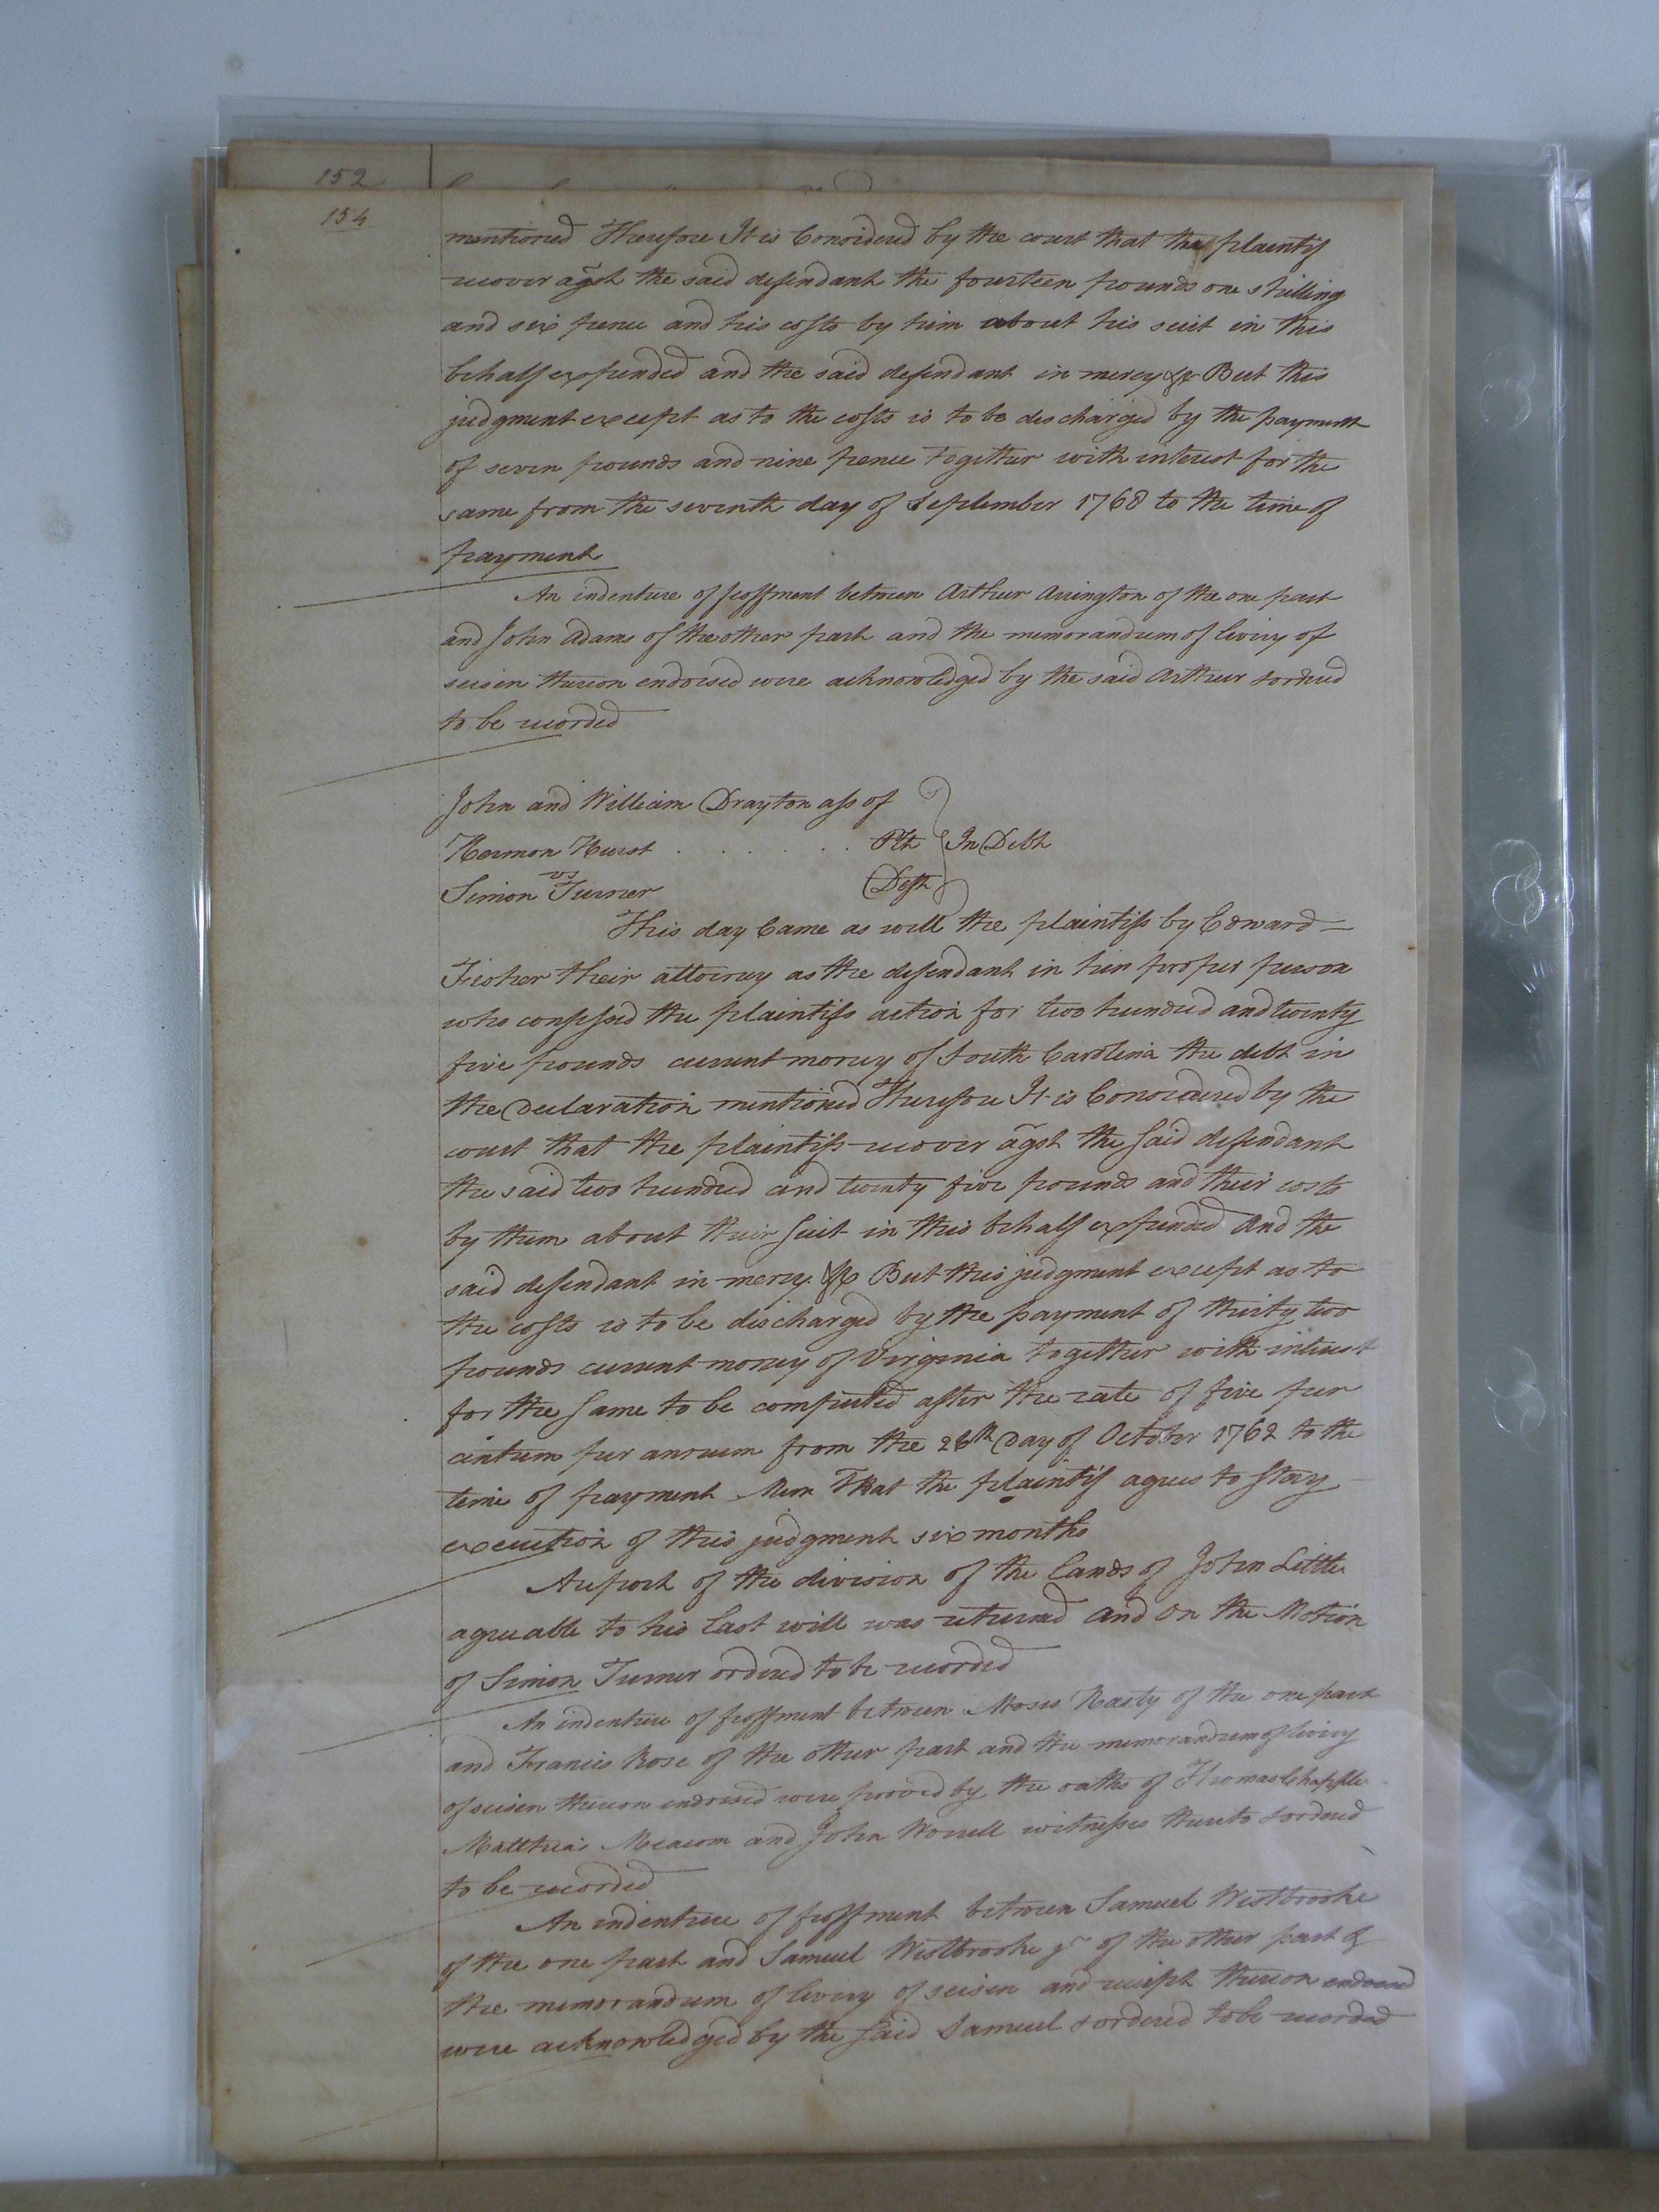 152
154
mentioned Therefore It is Considered by the court that the plaintif
recover agst the said defendant the fourteen pounds one shilling
and six pence and his costs by him about his suit in this
behalf expended and the said defendant in mercy &c But this
judgment except as to the costs is to be discharged by the payment
of seven pounds and nine pence together with interest for the
same from the seventh day of September 1768 to the time of
payment
An indenture of feoffment between Arthur Arrington of the one part
and John Adams of the other part and the memorandum of livery of
seisen thereon endorsed were acknowledged by the said Arthur & ordered
to be recorded
John and William Drayton ass of
Harmon Hurst . . . . . . Plt } In Debt
vs
Simon Turner Deft
This day Came as well the plaintifs by Edward
Fisher their attorney as the defendant in him proper person
who confessed the plaintifs action for two hundred and twenty
five pounds current money of South Carolina the debt in
the Declaration mentioned Therefore It is Considered by the
court that the plaintifs recover agst the said defendant
the said two hundred and twenty five pounds and their costs
by them about their suit in this behalf expended And the
said defendant in mercy &c But this judgment except as to
the costs is to be discharged by the payment of thirty two
pounds current money of Virginia together with interest
for the same to be computed after the rate of five per
centum per annum from the 28th Day of October 1762 to the
time of payment Mem That the plaintif agrees to stay
execution of this judgment six months
A report of the division of the lands of John Little
agreeable to his last will was returned and on the Motion
of Simon Turner ordered to be recorded
An indenture of feoffment between Moses Harty of the one part
and Francis Rose of the other part and the memorandum of livery
of seisen thereon endorsed were proved by the oaths of Thomas Chapple
Matthias Meacom and John Worrell witnesses thereto & ordered
to be recorded
An indenture of feoffment between Samuel Westbrooke
of the one part and Samuel Westbrooke jr of the other part &
the memorandum of livery of seisen and receipt thereon endorsed
were acknowledged by the said Samuel & ordered to be recorded